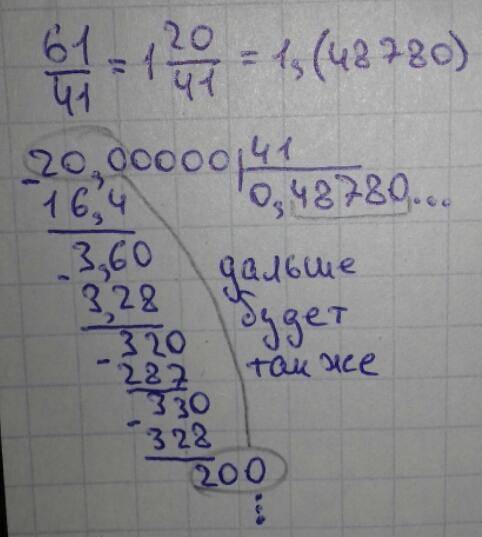 61/41 = 1 20/41 = 1,(48780)
-20,00000 | 41
16,4 0,48780...
-3,60
3,28
-320
287
-330
328
200
⋮
дальше
будет
так же